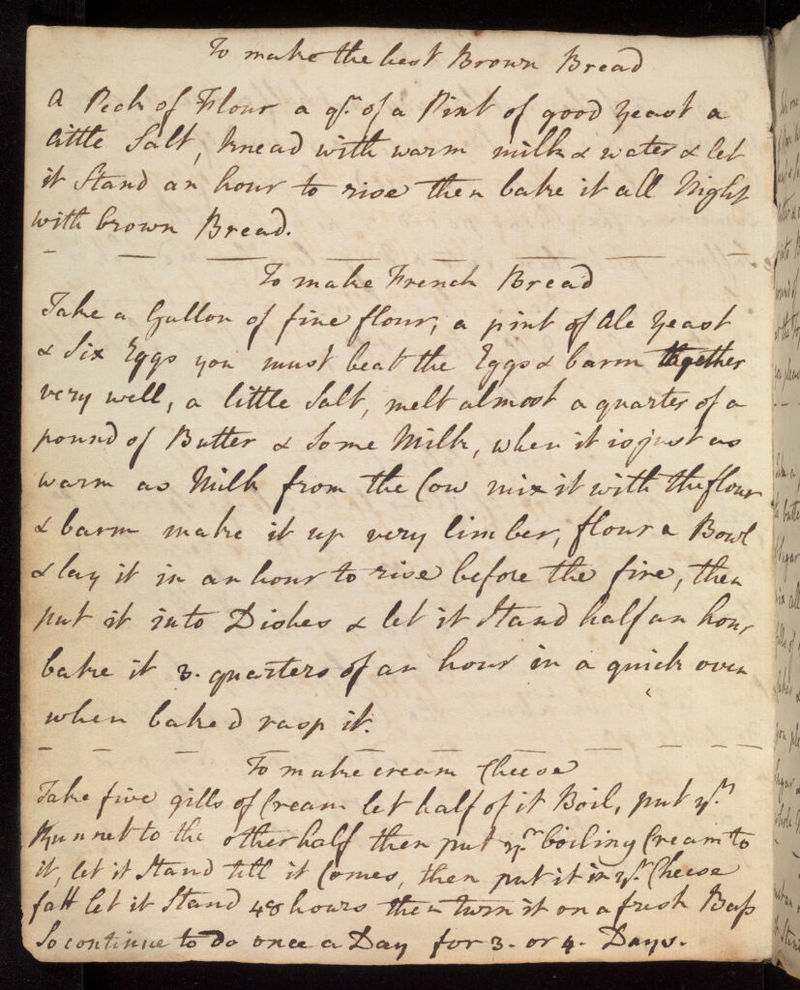 To make the best Brown Bread
A Peck of Flour a qr. of a Pint of good yeast a
little Salt, knead with warm milk & water & let
it Stand an hour to rise then bake it all Night
with brown Bread.
To make French Bread
Take a Gallon of fine flour, a pint of Ale yeast
& Six Eggs you must beat the Eggs & barm together
very well, a little Salt, melt almost a quarter of a
pound of Butter & Some Milk, when it is just as
warm as Milk from the Cow mix it with the flour
& barm make it up very limber, flour a Bowl
& lay it in an hour to rise before the fire, then
put it into Dishes & let it Stand half an hour
bake it 3. quarters of an hour in a quick oven
when baked rasp it.
To make cream Cheese
Take five gills of Cream let half of it Boil, put yr.
Runnet to the other half then put yr. boiling Cream to
it, let it Stand till it Comes, then put it in yr. Cheese
fatt let it Stand 48 hours then turn it on a fresh Bass
So continue to Do once a Day for 3. or 4. Days.